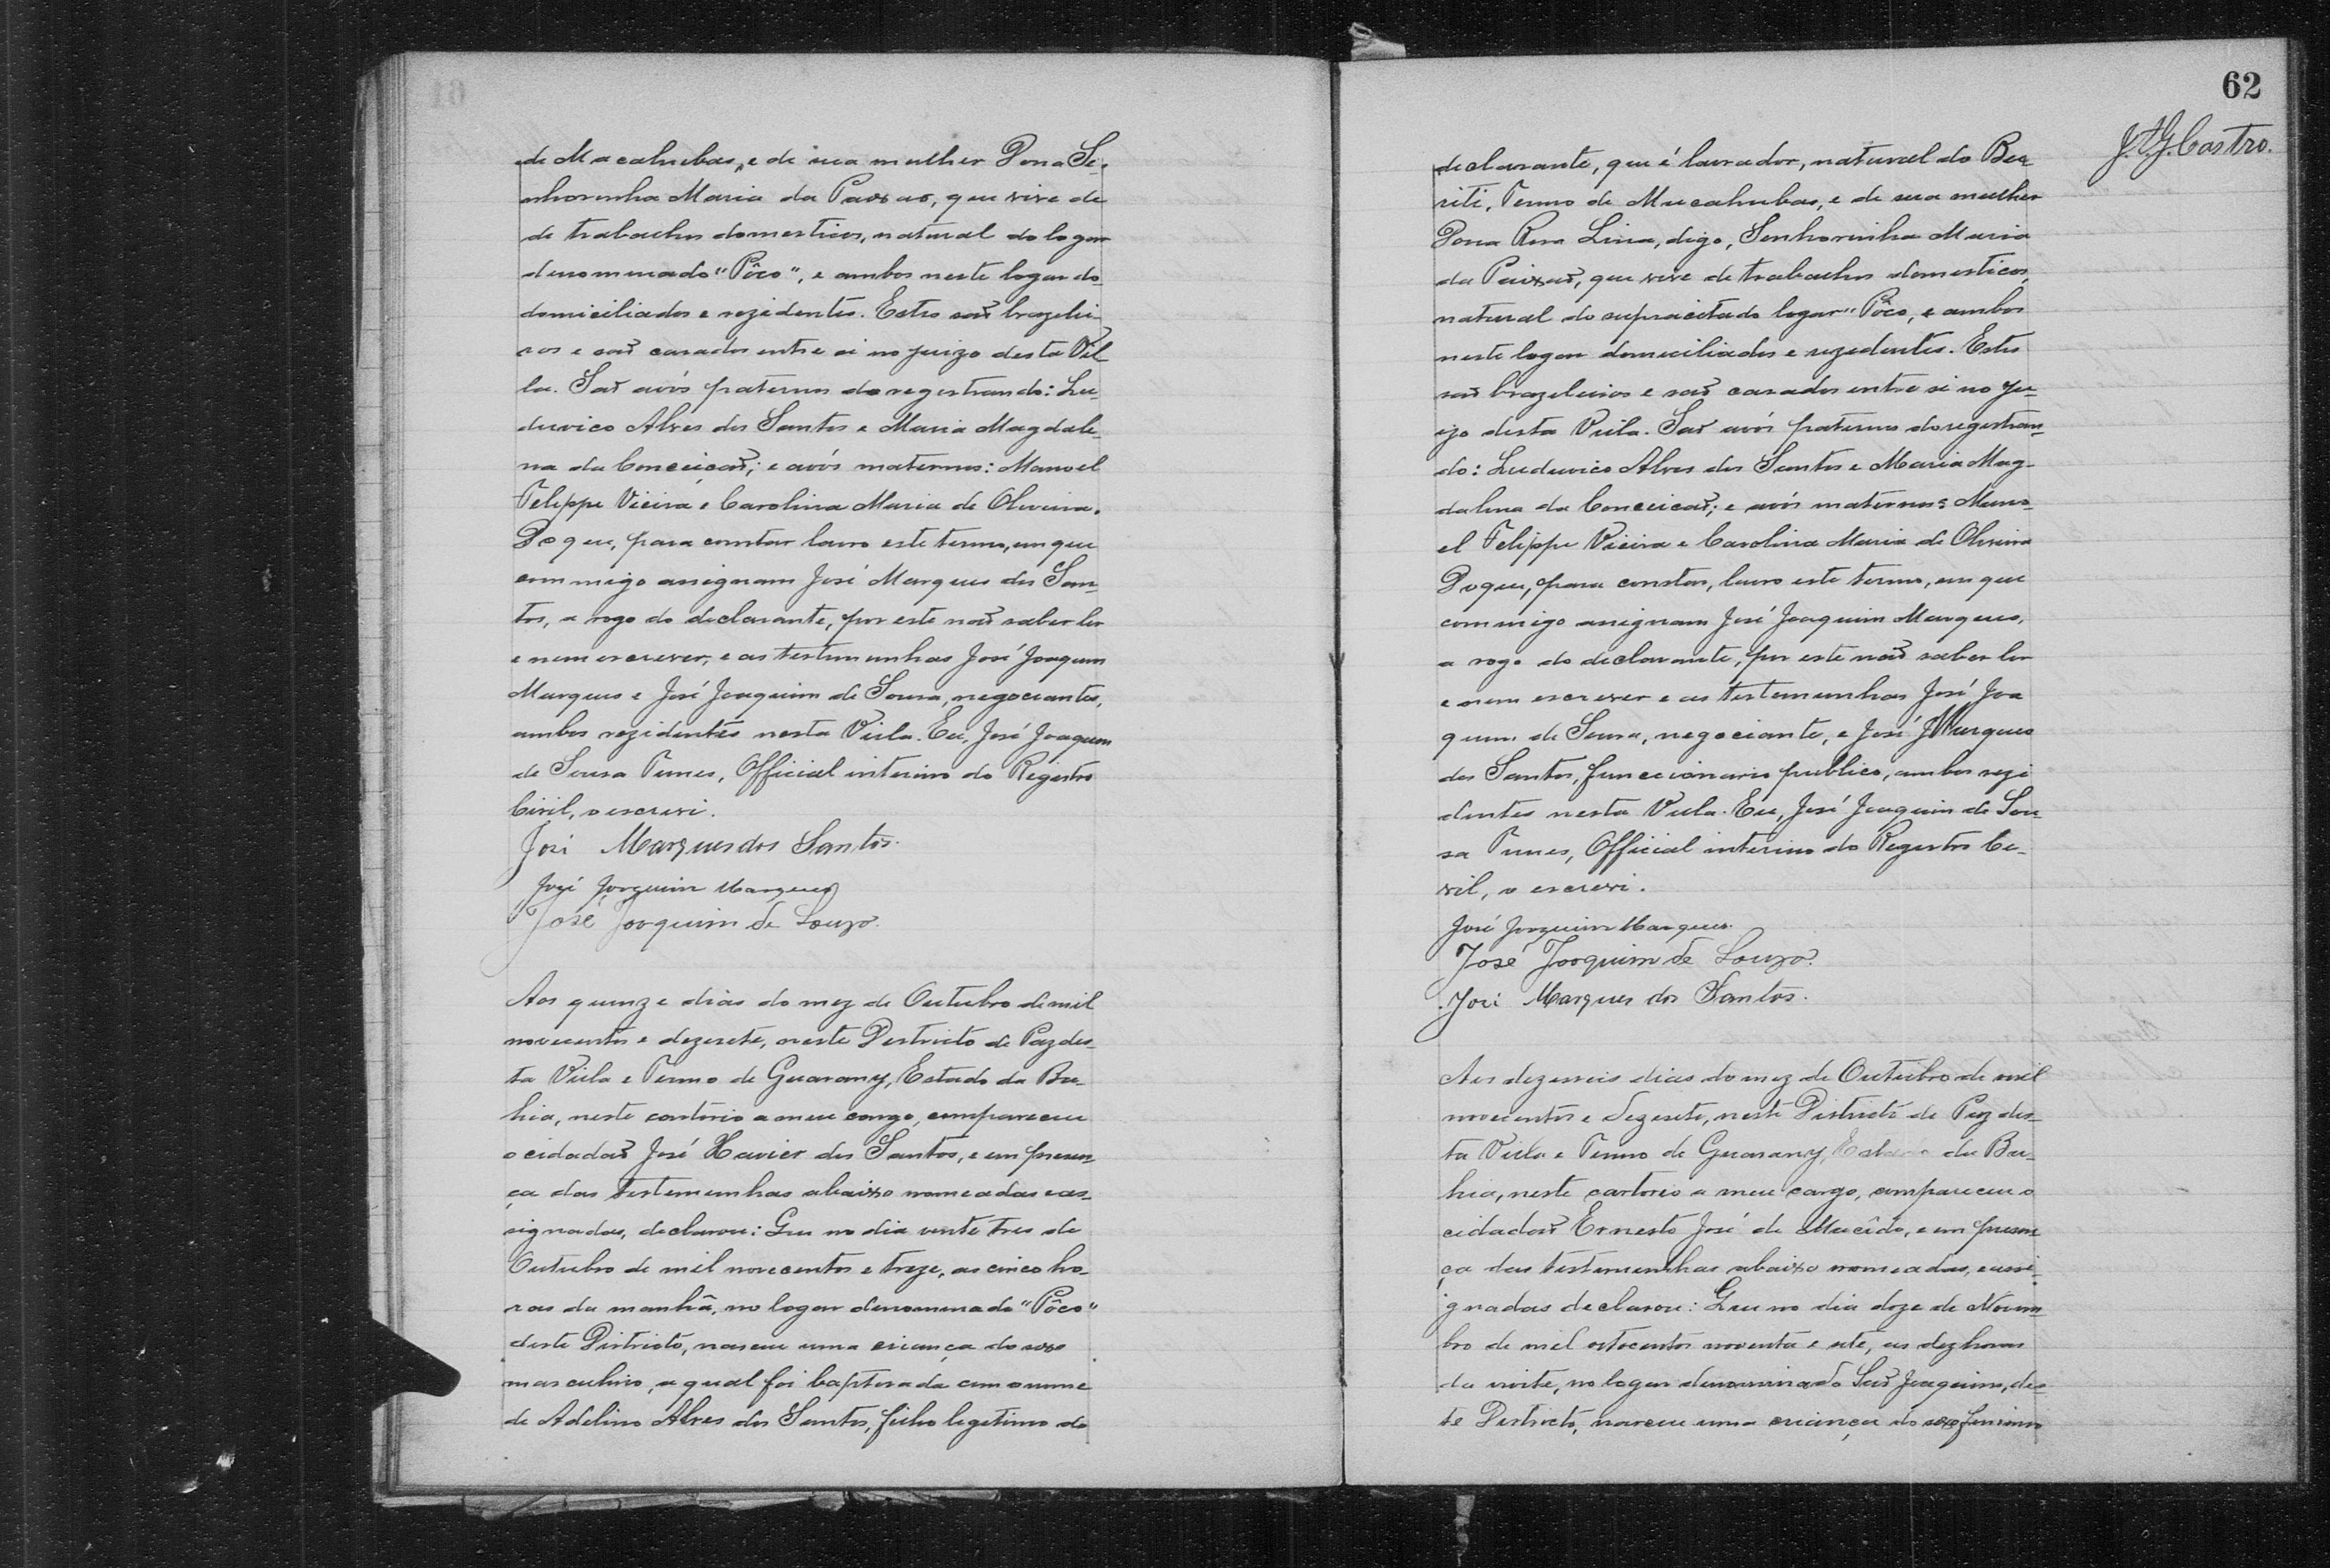 de Macahubas, e de sua mulher Dona Se-
nhorinha Maria da Paixao, que vive de
de trabalhos domesticos, natural do logar
denominado "Pôço", e ambos neste logar do
domiciliados e rezidentes. Estes saõ brazilei-
ros e saõ casados entre si no juizo desta Vil
la. Saõ avós paternos do registrando: Lu-
duvico Alves dos Santos e Maria Magdale-
na da Conceicaõ; e avós maternos: Manoel
Felippe Vieira e Carolina Maria de Oliveira.
Do que, para constar lavro este termo, em que
commigo assignam José Marques dos San-
tos, a rogo do declarante, por este naõ saber ler
e nem escrever, e as testemunhas José Joaquim
Marques e José Joaquim de Sousa, negociantes,
ambos rezidentes nesta Villa. Eu, José Joaquim
de Sousa Nunes, Official interino do Registro
Civil, o escrevi.
José Marques dos Santos.
José Joaquim Marques
José Joaquim de Souza.
Aos quinze dias do mez de Outubro de mil
novecentos e dezesete, neste Districto de Paz des-
ta Villa e Termo de Guarany, Estado da Ba-
hia, neste cartorio a meu cargo, compareceu
o cidadaõ José Xavier dos Santos, e em presen-
ça das testemunhas abaixo nomeadas e as-
signadas, declarou: Que no dia vinte tres de
Outubro de mil novecentos e treze, as cinco ho-
ras da manhã, no logar denominado "Pôço"
deste Districto, nasceu uma criança do sexo
masculino, a qual foi baptisada com o nome
de Adelino Alves dos Santos, filho legitimo do
62
J.A.G. Castro.
declarante, que é lavrador, natural do Bu-
riti, Termo de Macahubas, e de sua mulher
Dona Rosa Lina, digo, Senhorinha Maria
da Paixaõ, que vive de trabalhos domesticos,
natural do supracitado logar "Pôço, e ambos
neste logar domiciliados e rezidentes. Estes
saõ brazileiros e saõ casados entre si no ju-
izo desta Villa. Saõ avós paternos do registran-
do: Luduvico Alves dos Santos e Maria Mag-
dalena da Conceicaõ; e avós maternos: Mano-
el Felippe Vieira e Carolina Maria de Oliveira
Do que, para constar, lavro este termo, em que
commigo assignam José Joaquim Marques,
a rogo do declarante, por este naõ saber ler
e nem escrever e as testemunhas José Joa
quim de Sousa, negociante, e José Marques
dos Santos, funccionario publico, ambos rezi
dentes nesta Villa. Eu, José Joaquim de Sou-
sa Nunes, Official interino do Registro Ci-
vil, o escrevi.
José Joaquim Marques.
José Joaquim de Souza.
José Marques dos Santos.
Aos dezesseis dias do mez de Outubro de mil
novecentos e dezesete, neste Districto de Paz des-
ta Villa e Termo de Guarany, Estado da Ba-
hia, neste cartorio a meu cargo, compareceu o
cidadaõ Ernesto José de Macêdo, e em presen
ça das testemunhas abaixo nomeadas, e assi-
gnadas declarou: Que no dia doze de Novem-
bro de mil oitocentos noventa e sete, as dez horas
da noite, no logar denominado Saõ Joaquim, des-
te Districto, nasceu uma criança do sexo feminino